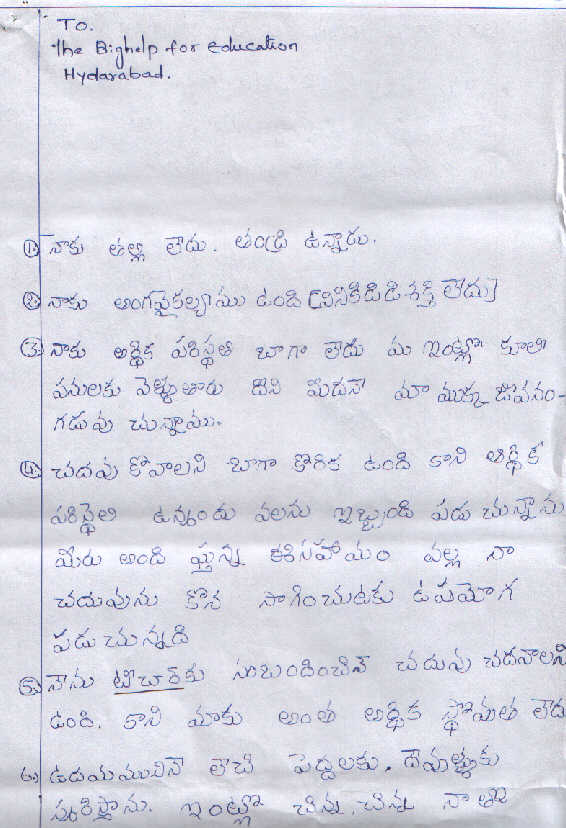 To.
The Bighelp for education
Hydarabad.
① నాకు తల్లి లేదు. తండ్రి ఉన్నారు.
② నాకు అంగవైకల్యాము ఉంది [వినికిడిడి శక్తి లేదు]
③ నాకు అర్థిక పరిస్థతి బాగా లేదు మ ఇంట్లో కూలి
పనులకు వెళ్ళుతారు దిని మీదనే మా ముక్క జీవనం-
గడువు చున్నాము.
④ చదవు కోవాలని బాగా కొరిక ఉంది కాని ఆర్థిక
పరిస్థైలి ఉన్నందు వలను ఇబ్బంది పడు చున్నాను
మీరు అంది స్తున్న సహయం వల్ల నా
చదువును కొన సాగించుటకు ఉపయోగ
పడు చున్నది
⑤ నాను టీచర్‌కు సంబందించిన చదువు చదవాలని
ఉంది. కాని మాకు అంత అర్థిక స్థోమత లేదు
ఉదయముచినే లేచి పెద్దలకు. దేవుళ్ళకు
స్కరిస్తాను. ఇంట్లో చిన్న. చిన్న